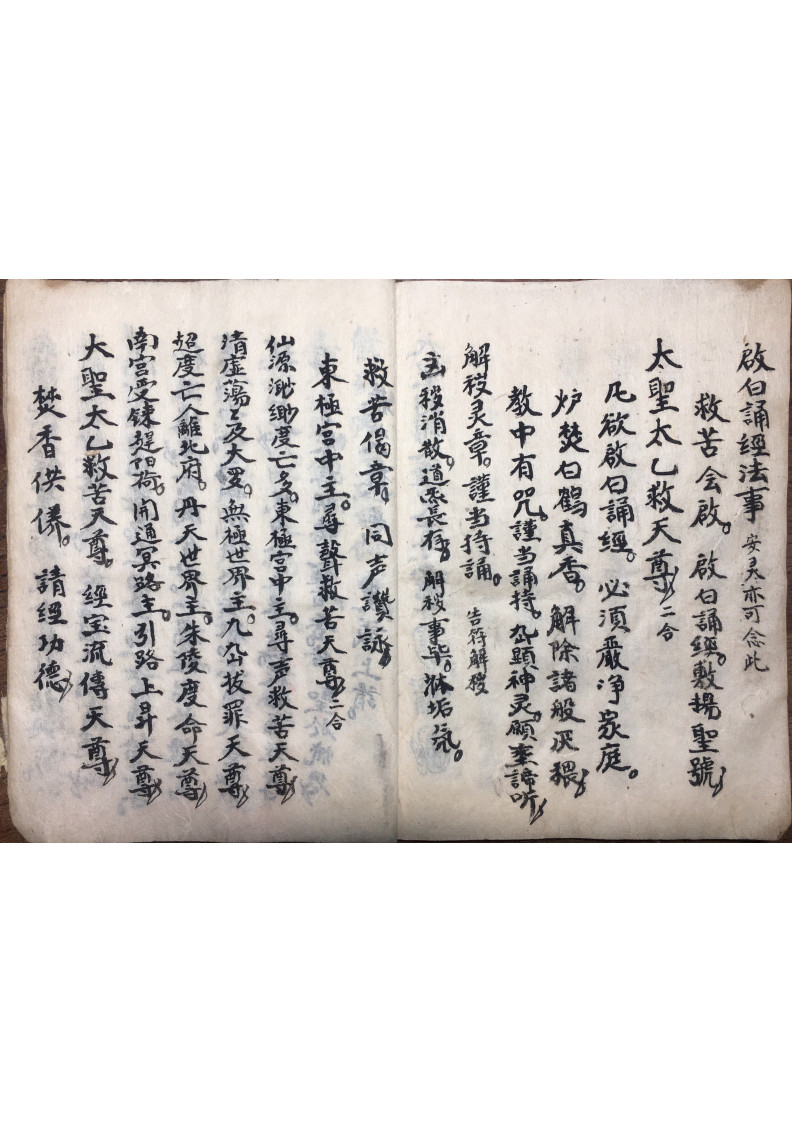 啟白誦經法事 安灵亦可念此
救苦会啟。啟白誦經。敷揚聖號
太聖太乙救天尊 二合
凡欲啟白誦經。必須嚴净家庭。
炉焚白鶴真香。解除諸般厌猥
教中有咒。謹当誦持。 顕神灵。願垂諦听
解秽灵章。謹当持誦。 告符解穢
秽消散。道炁長存。解秽事毕。 垢氛。
救苦偈章。同声讚詠
東極宮中主。尋聲救苦天尊 二合
仙源渺缈度亡多。東極宮中主。尋声救苦天尊
清虚蕩〻及大罗。無極世界主。九 拔罪天尊
超度亡人離北府。丹天世界主。朱陵度命天尊
南宫受鍊 陽 。開通冥路主。引路上昇天尊
大聖太乙救苦天尊。經宝流傳天尊
焚香供養。請經功德